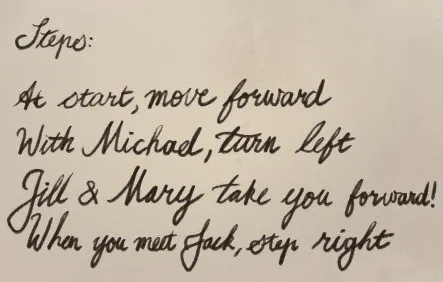 Steps:
At start, move forward
With Michael, turn left
Jill & Mary take you forward!
When you meet Jack, step right